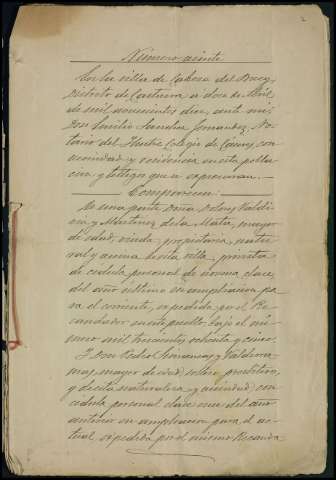 Número veinte
En la villa de Cabeza del Buey,
distrito de Castuera a doce de Abril
de mil novecientos diez, ante mí,
Don Emilio Sanchez Fernandez, No-
tario del Ilustre Colegio de Cáceres, con
vecindad y residencia en esta pobla-
cion y testigos que se espresaran.
Comparecen:
De una parte Doña Dolores Valdi-
via y Martinez de la Mata, mayor
de edad, viuda, propietaria, natu-
ral y vecina de esta villa, provista
de cedula personal de novena clase,
del año ultimo en ampliacion pa-
ra el corriente, expedida por el Re-
caudador en este pueblo, bajo el nú-
mero mil trescientos ochenta y cinco.
Y Don Pedro
mas, mayor de edad, soltero, propietario,
y de esta naturaleza y vecindad, con
cédula personal clase once del año
anterior en ampliacion para el ac-
tual, expedida por el mismo Recauda